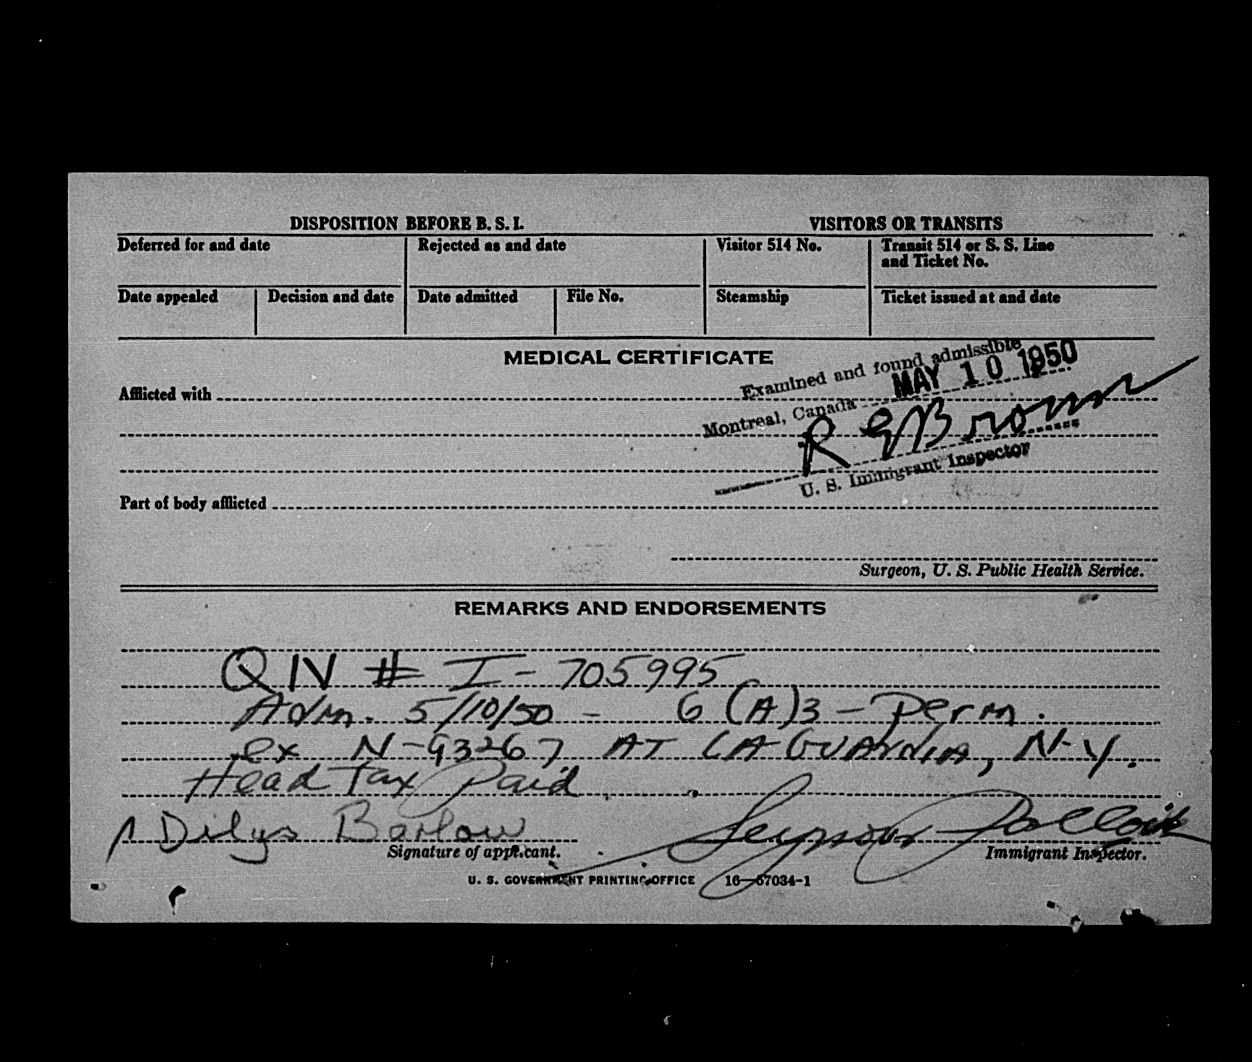 DISPOSITION BEFORE B. S. I. VISITORS OR TRANSITS
Deferred for and date Rejected as and date Visitor 514 No. Transit 514 or S. S. Line
and Ticket No.
Date appealed Decision and date Date admitted File No. Steamship Ticket issued at and date
MEDICAL CERTIFICATE
Examined and found admissible
Montreal, Canada MAY 10 1950
Afflicted with
R G Brown
U. S. Immigrant Inspector
Part of body afflicted
Surgeon, U. S. Public Health Service.
REMARKS AND ENDORSEMENTS
QIV # I-705995
Adm. 5/10/50 - 6 (A)3 - Perm.
ex N-93267 AT LA GUARDIA, N-Y.
Head Tax Paid
Dilys Barlow Seymour Pollock
Signature of applicant. Immigrant Inspector.
U. S. GOVERNMENT PRINTING OFFICE 16—57034-1